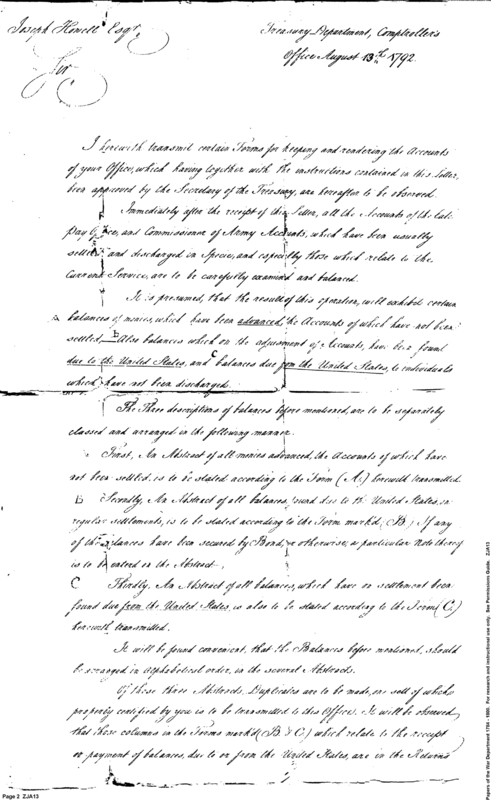 Joseph Howell Esqr.
Treasury Department, Comptroller's
Office August 13th. 1792.
Sir
I herewith transmit certain Forms for keeping and rendering the Accounts
of your Office, which having together with the instructions contained in this letter,
been approved by the Secretary of the Treasury, are hereafter to be observed.
Immediately after the receipt of this Letter, all the Accounts of the late
Pay Office, and Commissioner of Army Accounts, which have been usually
settled and discharged in Specie, and especially those which relate to the
Current Service, are to be carefully examined and balanced.
It is presumed, that the result of this operation, will exhibit certain
A balances of monies, which have been advanced, the Accounts of which have not been
settled. B Also balances which on the adjustment of Accounts, have been found
due to the United States, and C balances due from the United States, to individuals
which have not been discharged.
The Three descriptions of balances before mentioned, are to be separately
classed and arranged in the following manner.
First, An Abstract of all monies advanced, the Accounts of which have
not been settled, is to be stated according to the Form (A.) herewith transmitted.
B Secondly, An Abstract of all balances, found due to the United States, in
regular settlements, is to be stated according to the Form mark'd (B.) If any
of the balances have been secured by Bond, or otherwise, a particular Note thereof
is to be entered on the Abstract.
C Thirdly, An Abstract of all balances, which have on settlement been
found due from the United States, is also to be stated according to the Form (C.)
herewith transmitted.
It will be found convenient, that the Balances before mentioned, should
be arranged in Alphabetical order, in the several Abstracts.
Of these three Abstracts, Duplicates are to be made, one sett of which
properly certified by you is to be transmitted to this Office. It will be observed
that those columns in the Forms mark'd (B & C.) which relate to the receipt
or payment of balances, due to or from the United States, are in the Returns
Page 2 ZJA13
Papers of the War Department 1784 - 1800. For research and instructional use only. See Permissions Guide. ZJA13